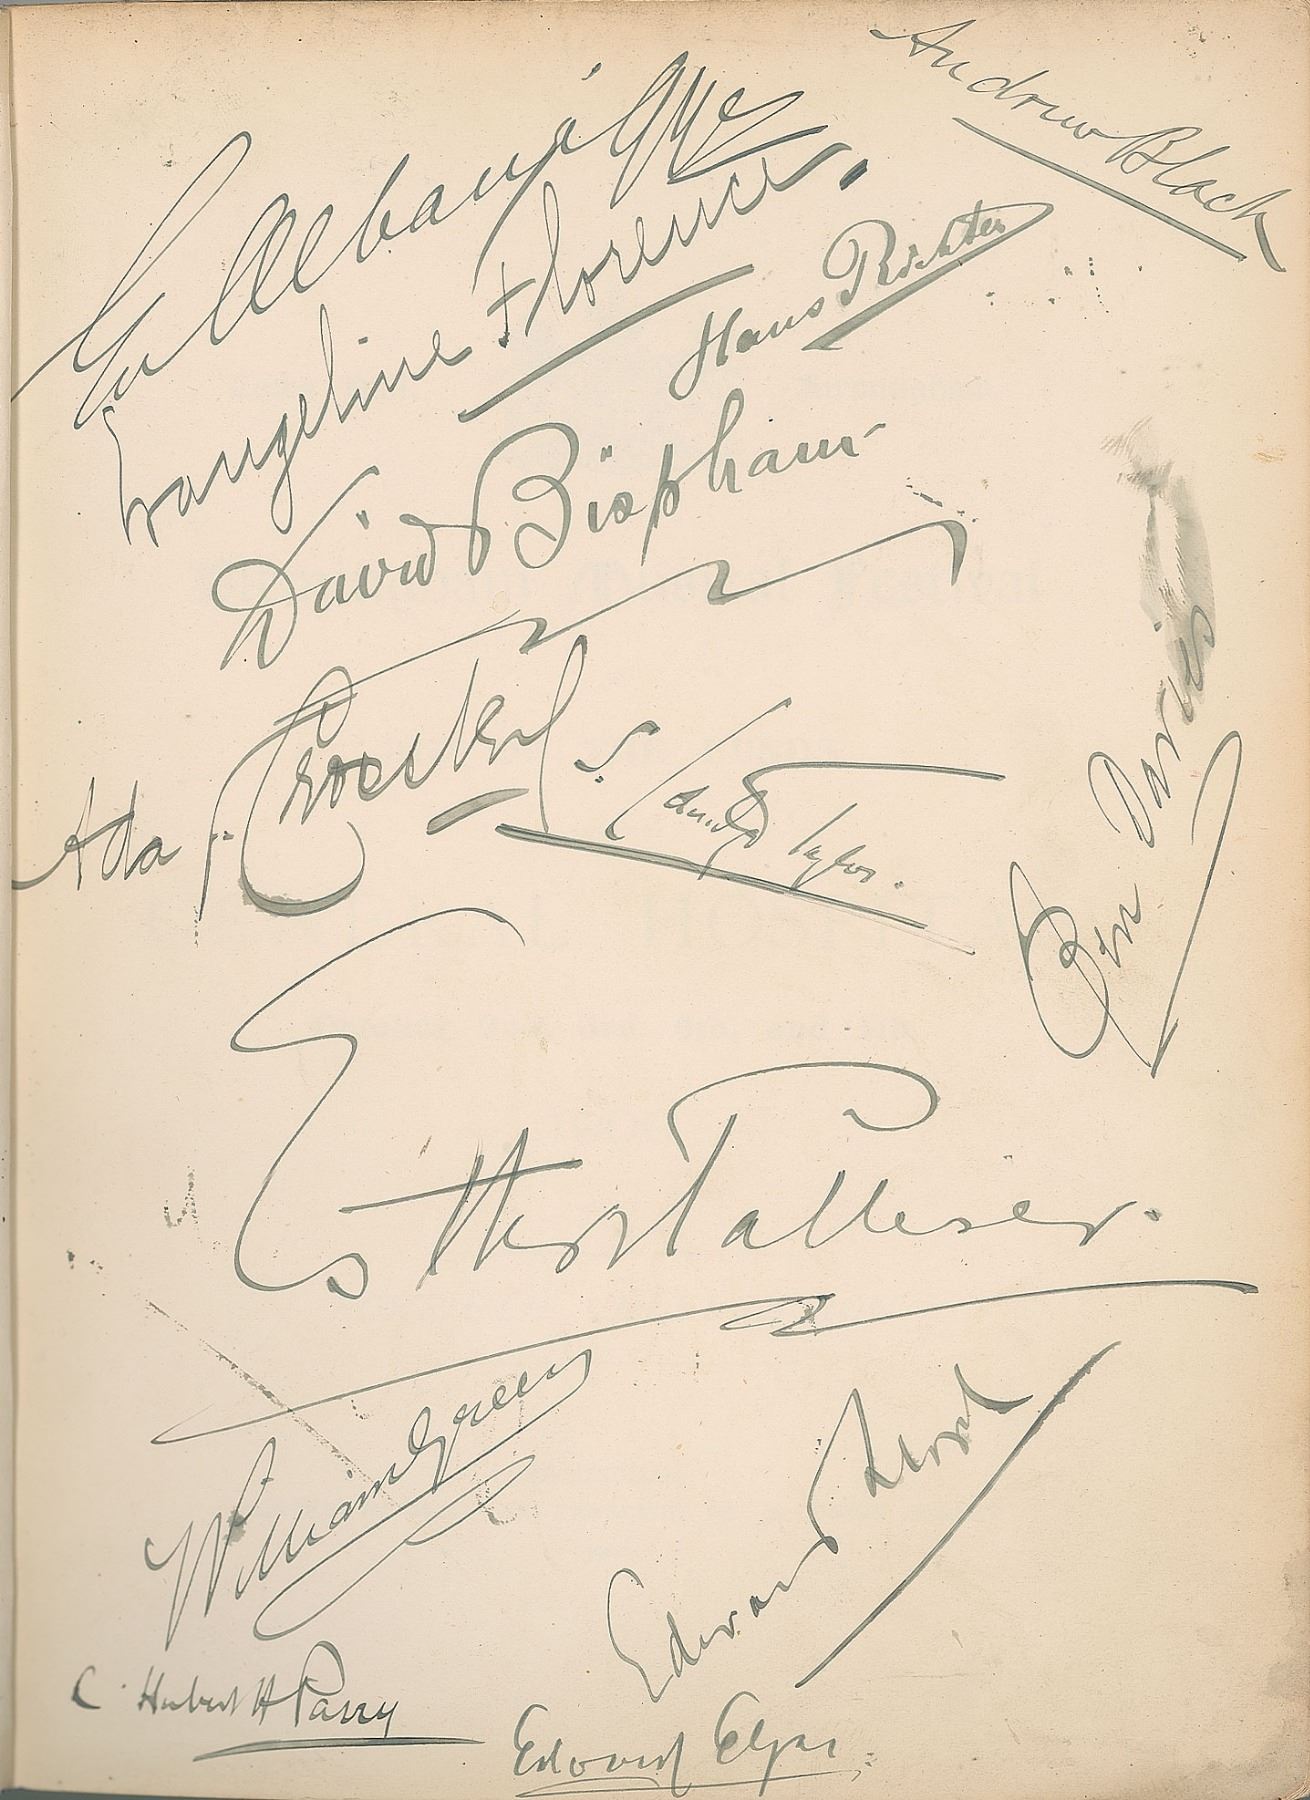 Andrew Black
E. Albani Gye
Evangeline Florence.
Hans Richter
David Bispham
Ada Crossley
S. Coleridge Taylor.
Ben Davies
Esther Palliser.
William Green
Edward Lloyd
C. Hubert H Parry
Edward Elgar.